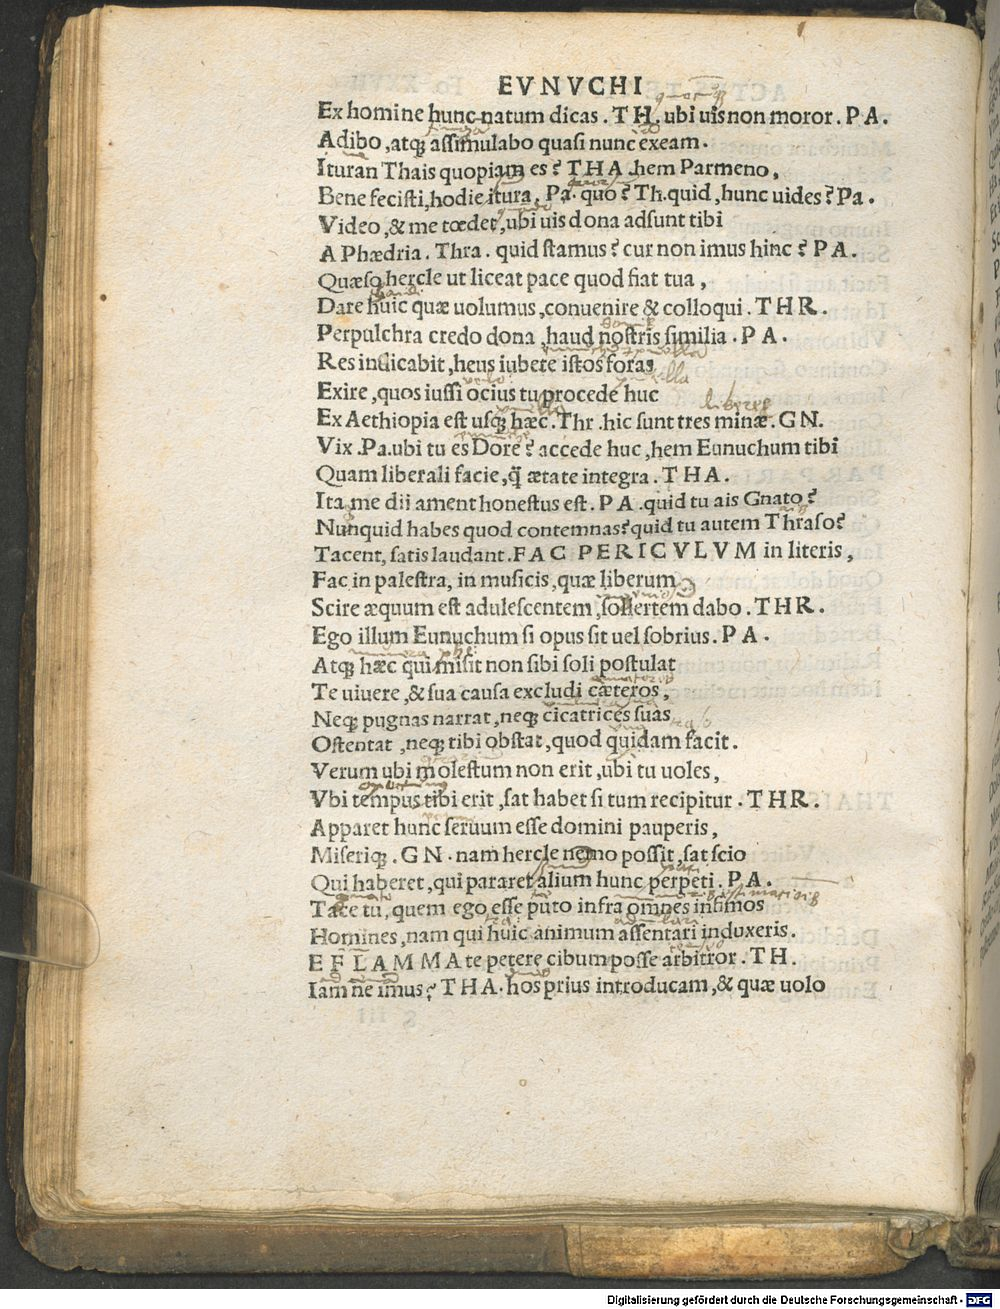 EVNVCHI
Ex homine hunc natum dicas . T H. ubi uis non moror . P A .
Adibo , atq; assimulabo quasi nunc exeam .
Ituran Thais quopiam es ? T H A .hem Parmeno ,
Bene fecisti, hodie itura. Pa. quo ? Th.quid , hunc uides ? Pa .
Video , & me tœdet , ubi uis dona adsunt tibi
A Phædria . Thra . quid stamus ? cur non imus hinc ? P A .
Quæso hercle ut liceat pace quod fiat tua ,
Dare huic quæ uolumus , conuenire & colloqui . T H R .
Perpulchra credo dona , haud nostris similia . P A .
Res indicabit , heus iubete istos foras
Exire , quos iussi ocius tu procede huc
libreꝝ
Ex Aethiopia est usq; hæc . Thr . hic sunt tres minæ . G N.
Vix . Pa.ubi tu es Dore ? accede huc , hem Eunuchum tibi
Quam liberali facie, q̃ ætate integra . T H A .
Ita me dii ament honestus est . P A . quid tu ais Gnato ?
Nunquid habes quod contemnas? quid tu autem Thraso?
Tacent, satis laudant . F A C P E R I C V L V M in literis ,
Fac in palestra, in musicis, quæ liberum
Scire æquum est adulescentem , sollertem dabo . T H R .
Ego illum Eunuchum si opus sit uel sobrius . P A .
Atq; hæc qui misit non sibi soli postulat
Te uiuere , & sua causa excludi cæteros ,
Neq; pugnas narrat , neq; cicatrices suas
Ostentat , neq; tibi obstat , quod quidam facit .
Verum ubi molestum non erit , ubi tu uoles ,
Vbi tempus tibi erit , sat habet si tum recipitur . T H R .
Apparet hunc seruum esse domini pauperis ,
Miseriq; . G N . nam hercle nemo possit , sat scio
Qui haberet , qui pararet alium hunc perpeti . P A .
Tace tu , quem ego esse puto infra omnes infimos
Homines , nam qui huic animum assentari induxeris .
E F L A M M A te petere cibum posse arbitror . T H .
Iam ne imus ? T H A . hos prius introducam , & quæ uolo
Digitalisierung gefördert durch die Deutsche Forschungsgemeinschaft - DFG